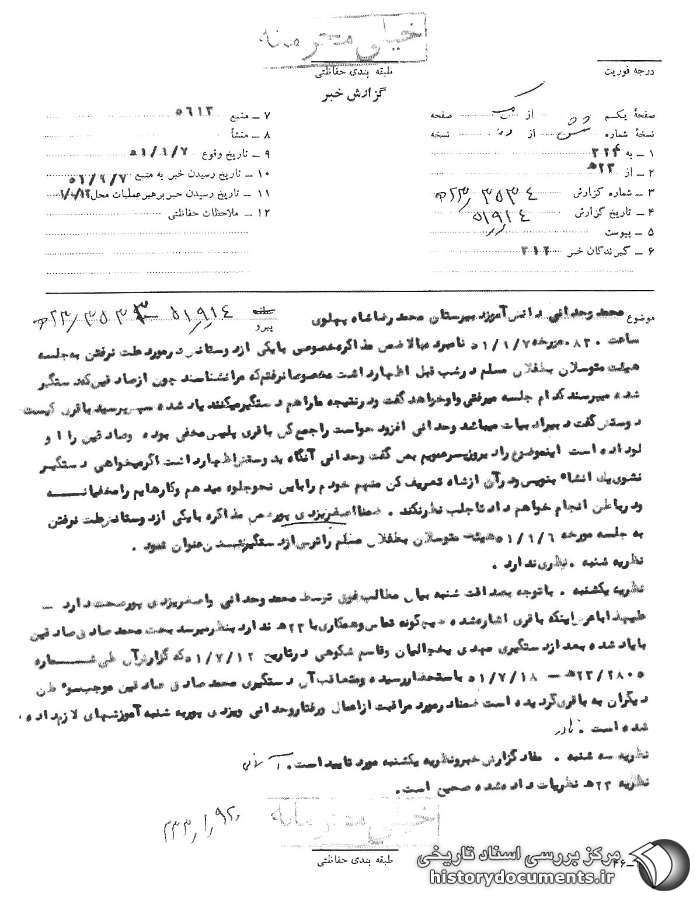 خیلی محرمانه
طبقه بندی حفاظتی
درجه فوریت
گزارش خبر
صفحهٔ یکم از صفحه
نسخهٔ شماره از نسخه
۱ ـ به ۳۲۴
۲ ـ از ۲۳ه‍
۳ ـ شماره گزارش ۳۵۳۴/ه‍۲۳
۴ ـ تاریخ گزارش ۵۱/۹/۱۴
۵ ـ پیوست
۶ ـ گیرندگان خبر ۳۱۲
۷ ـ منبع ۵۶۱۳
۸ ـ منشأ
۹ ـ تاریخ وقوع ۵۱/۹/۷
۱۰ ـ تاریخ رسیدن خبر به منبع ۵۱/۹/۷
۱۱ ـ تاریخ رسیدن خبر برهبر عملیات محل
۱۲ ـ ملاحظات حفاظتی
موضوع محمد وحدانی دانش آموز دبیرستان محمد رضا شاه پهلوی
پیرو ۵۱/۹/۱۴
ساعت ۰۸۳۰ مورخه ۵۱/۹/۷ نامبرده بالا ضمن مذاکره خصوصی با یکی از دوستانش در مورد علت نرفتن به جلسه
هیئت متوسلان بطفلان مسلم در شب قبل اظهار داشت مخصوصا نرفتم که مرا نشناسند چون از صادقین که دستگیر
شده میپرسند کدام جلسه میرفتی واو خواهد گفت ودر نتیجه ما را هم دستگیر میکنند یاد شده سپس پرسید باقری کیست
دوستش گفت دبیر ادبیات میباشد وحدانی افزود حواست را جمع کن باقری پلیس مخفی بوده و صادقین را او
لو داده است اینموضوع را دیروز پسرعمویم بمن گفت وحدانی آنگاه بدوستش اظهار داشت اگر میخواهی دستگیر
نشوی یک انشاء بنویس ودر آن از شاه تعریف کن منهم خودم را باین نحو جلوه میدهم وکارهایم را مخفیانه
ودر باطن انجام خواهم داد تا جلب نظر نکند . ضمنا اصغر یزدی پور ضمن مذاکره با یکی از دوستانش علت نرفتن
به جلسه مورخه ۵۱/۹/۶ هیئت متوسلان بطفلان مسلم را ترس از دستگیر شدن عنوان نمود .
نظریه شنبه . نظری ندارد .
نظریه یکشنبه . با توجه بصداقت شنبه بیان مطالب فوق توسط محمد وحدانی واصغر یزدی پور صحت دارد ـ
علیهذا با عرض اینکه باقری اشاره شده هیچگونه تماس وهمکاری با ۲۳ه‍ ندارد بنظر میرسد بحث محمد صادق صادقین
با یاد شده بعد از دستگیری مهدی یخچالیان وقاسم شکوهی در تاریخ ۵۱/۷/۱۲ که گزارش آن طی شماره
۲۸۰۵/ه‍۲۳ ـ ۵۱/۷/۱۸ باستحضار رسیده ومتعاقب آن دستگیری محمد صادق صادقین موجب سوء ظن
دیگران به باقری گردیده است ضمنا در مورد مراقبت از اعمال ورفتار وحدانی ویزدی پور به شنبه آموزشهای لازم داده
شده است . نادر
نظریه سه شنبه . مفاد گزارش خبر ونظریه یکشنبه مورد تایید است .
نظریه ۲۳ه‍ نظریات داده شده صحیح است .
خیلی محرمانه
طبقه بندی حفاظتی
مرکز بررسی اسناد تاریخی
historydocuments.ir